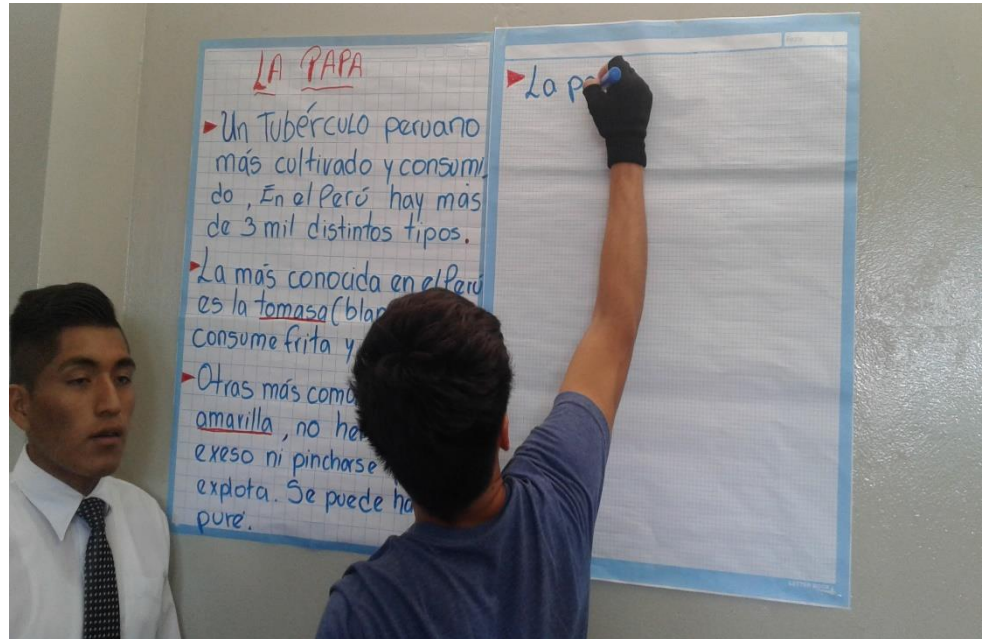 LA PAPA
Un Tubérculo peruano
más cultivado y consumi
do, En el Perú hay más
de 3 mil distintos tipos.
La más conocida en el Perú
es la tomasa (blan
consume frita y
Otras más com
amarilla, no he
exeso ni pincharse
explota. Se puede ha
puré.
La p